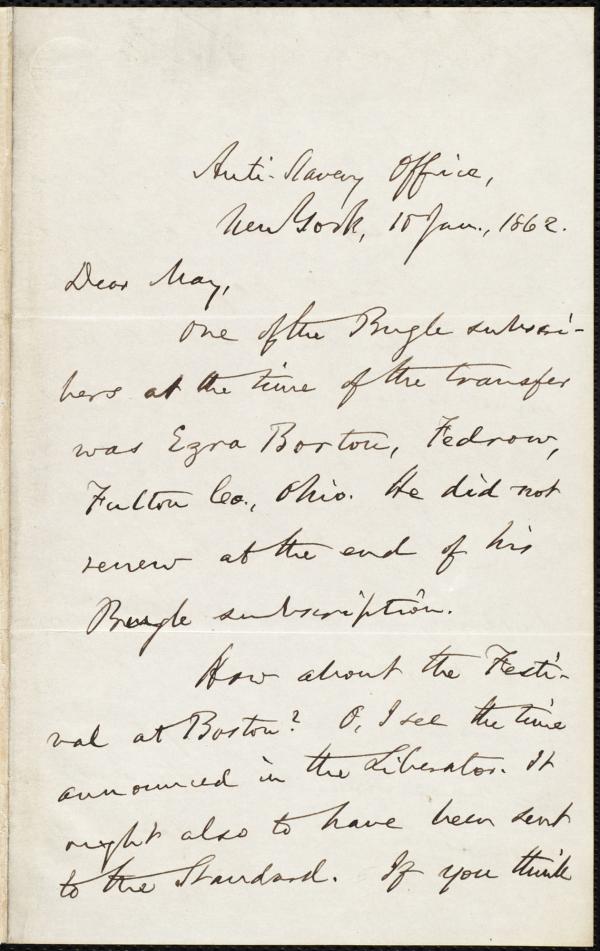 Anti-Slavery Office,
New York, 10 Jan., 1862.
Dear May,
One of the Bugle subscri-
bers at the time of the transfer
was Ezra Borton, Fedrow,
Fulton Co., Ohio. He did not
renew at the end of his
Bugle subscription.
How about the Festi-
val at Boston? O, I see the time
announced in the Liberator. It
ought also to have been sent
to the Standard. If you think